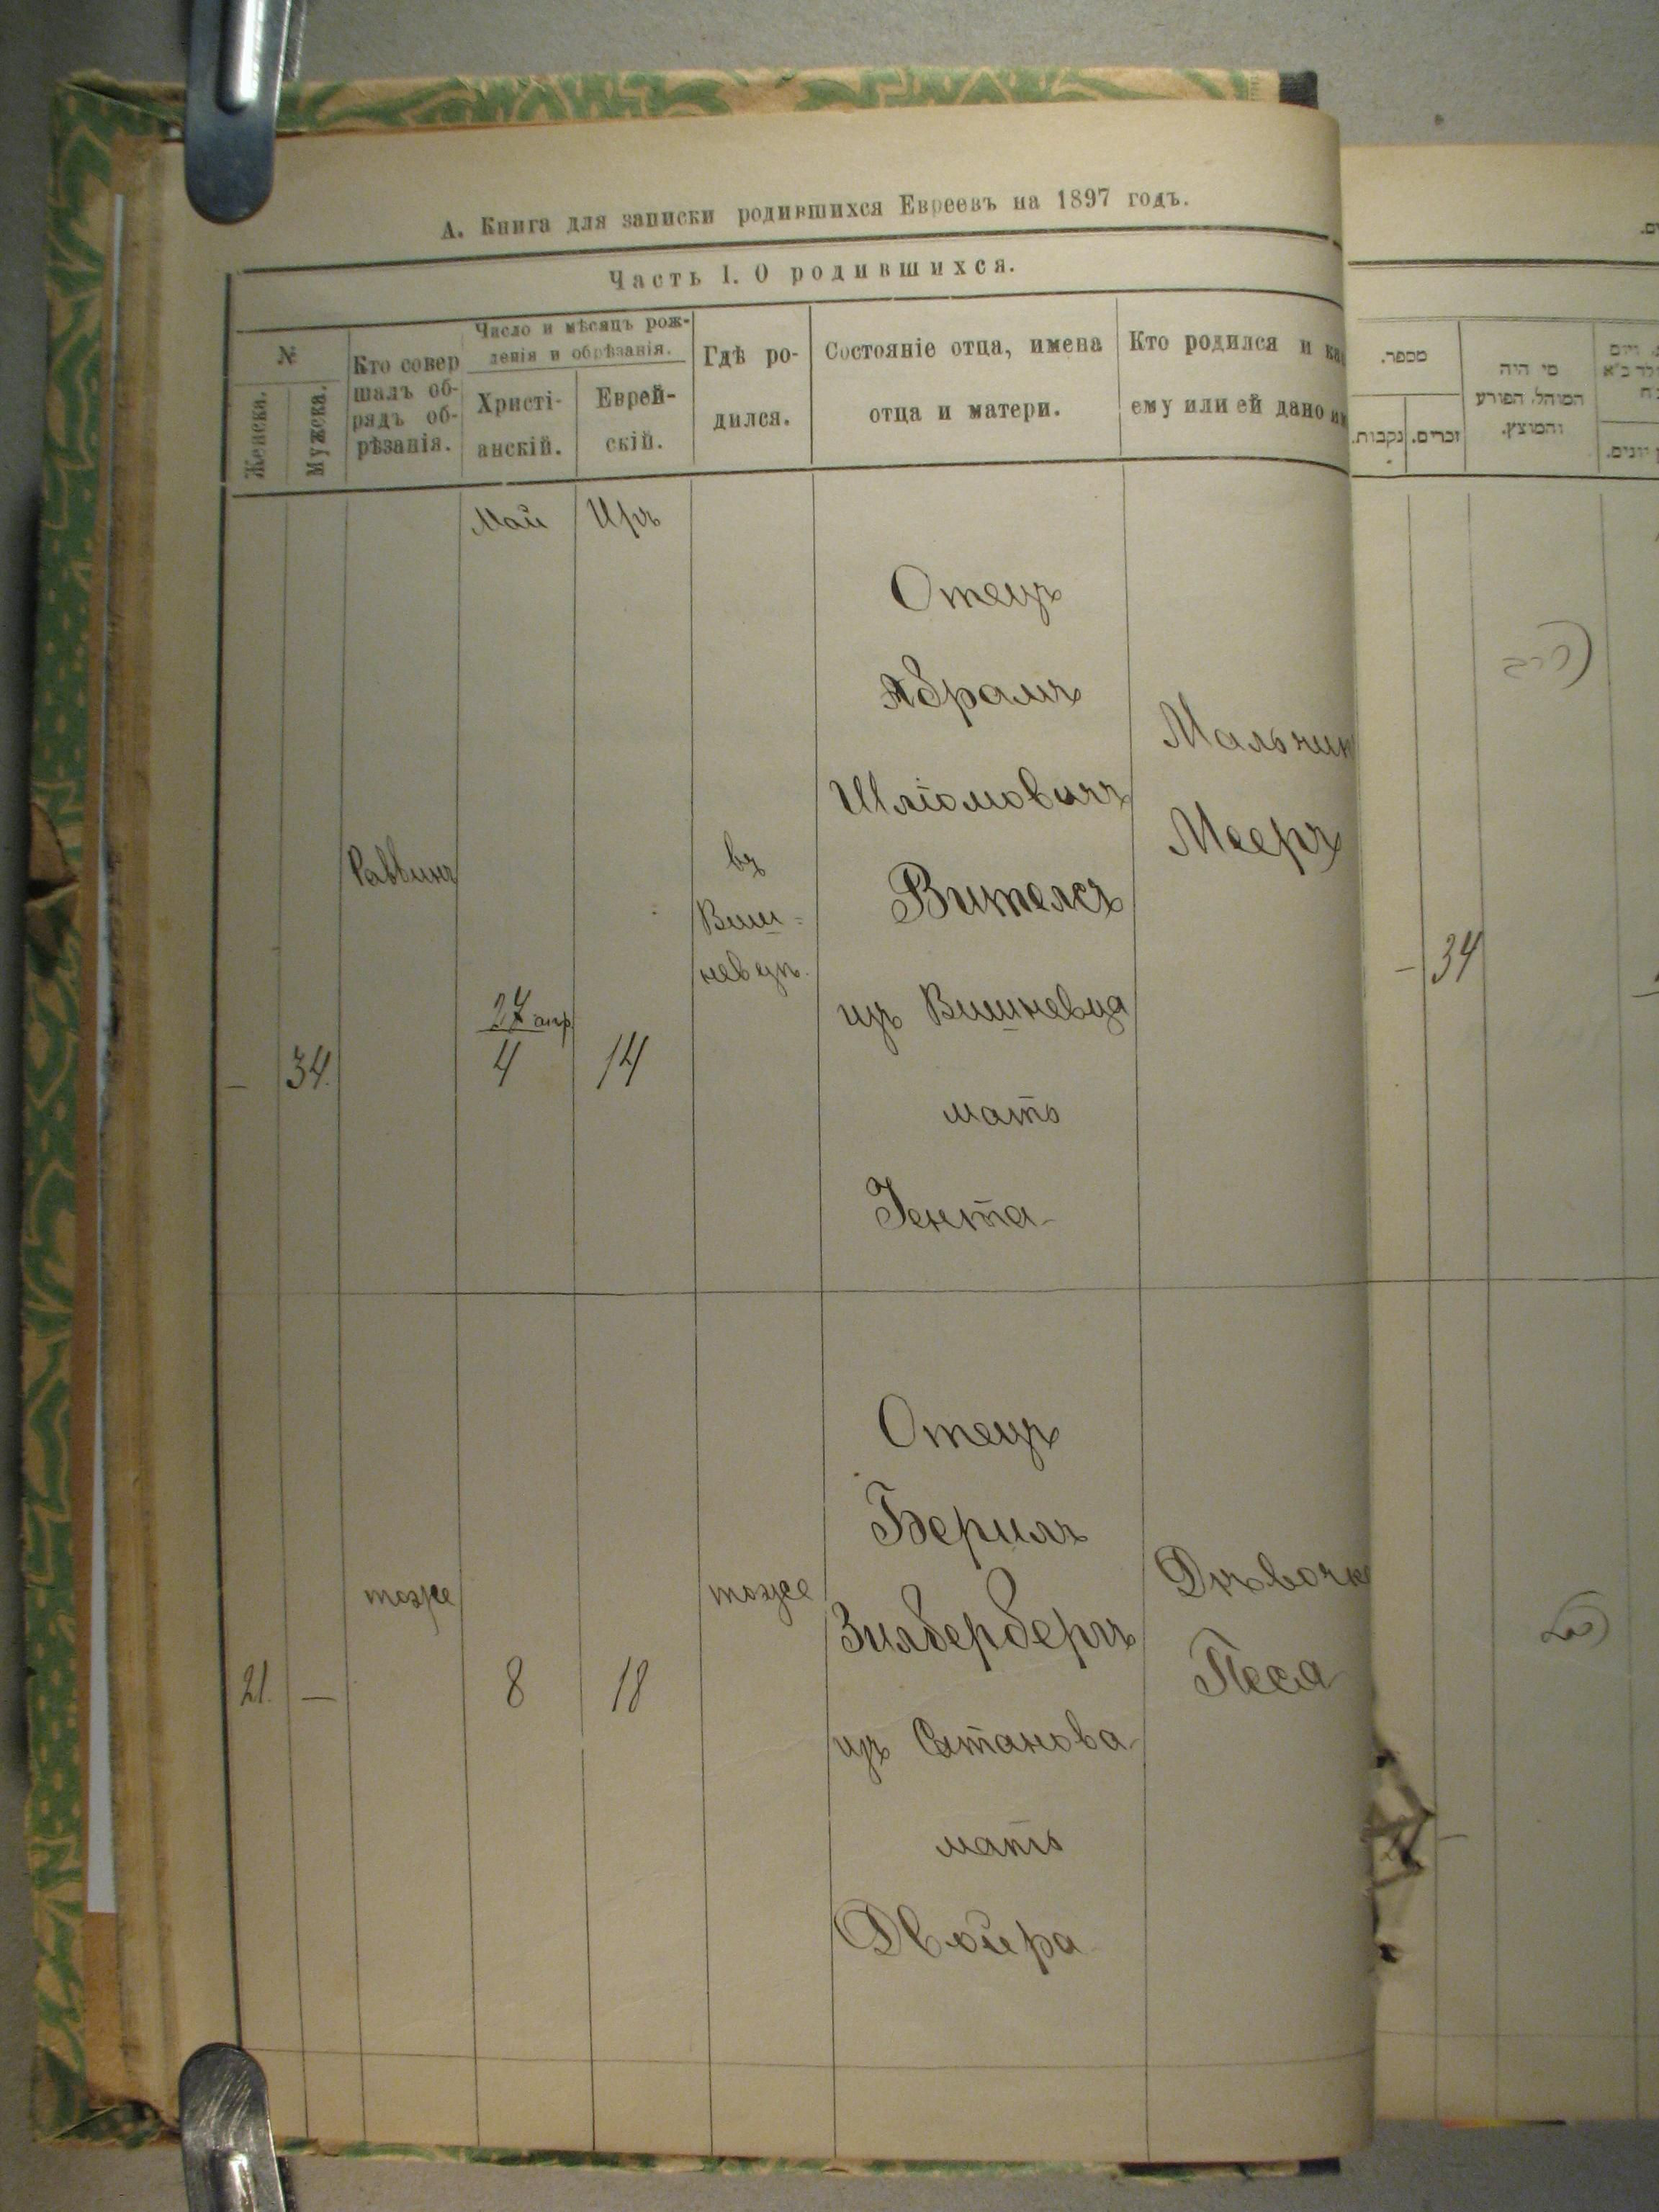 А. Книга для записки родившихся Евреевъ на 1897 годъ.
Часть I. О родившихся.
№
Женска.
Мужска.
Кто совер
шалъ об-
рядъ об-
рѣзанія.
Число и мѣсяцъ рож-
денія и обрѣзанія.
Христі-
анскій.
Еврей-
скій.
Гдѣ ро-
дился.
Состояніе отца, имена
отца и матери.
Кто родился и как
ему или ей дано им
Май
Иръ
– 34.
Раввинъ
27 апр.
4
14
въ
Виш-
невцѣ.
Отецъ
Абрамъ
Шліомовичъ
Вителсъ
изъ Вишневца
мать
Іента
Мальчик
Мееръ
21. –
тоже
8
18
тоже
Отецъ
Берилъ
Зилберберъ
изъ Сатанова
мать
Двойра
Дѣвочка
Песя
מספר.
נקבות.
זכרים.
מי היה
המוהל, הפורע
והמוצץ.
יונים.
– 34